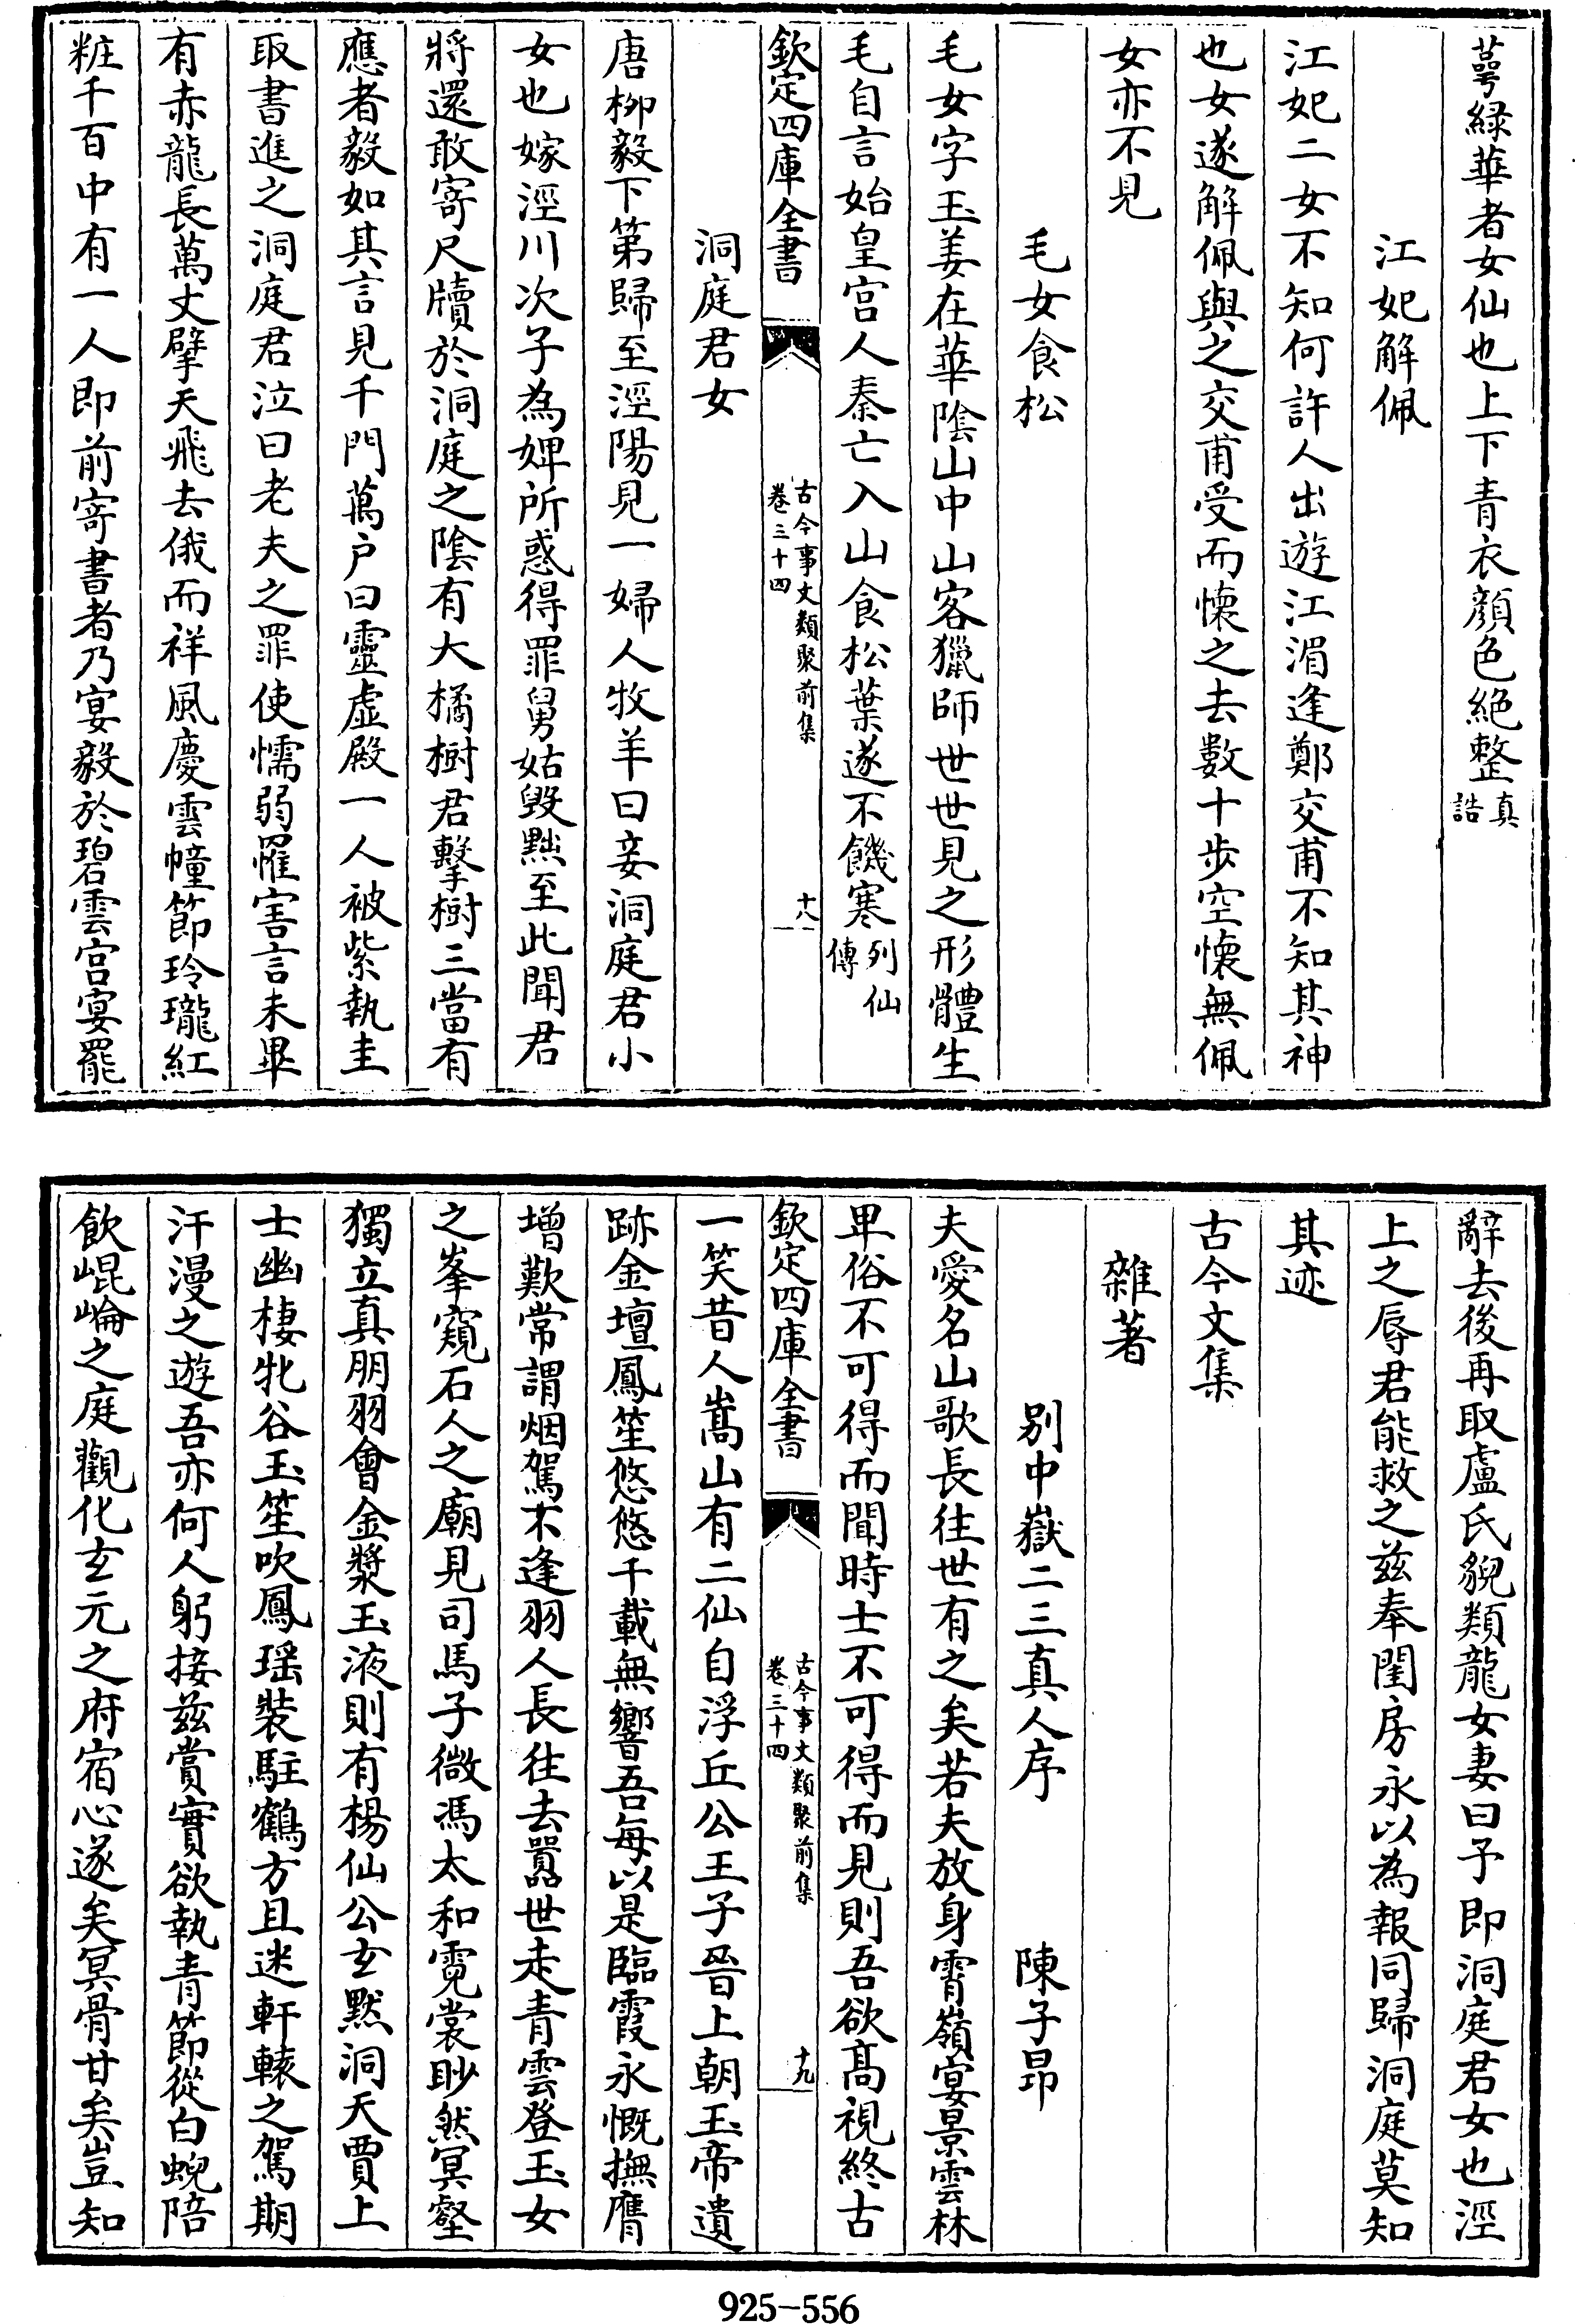 萼緑華者女仙也上下青衣顔色絶整真誥
江妃解佩
江妃二女不知何許人出遊江湄逢鄭交甫不知其神
也女遂解佩與之交甫受而懐之去數十步空懐無佩
女亦不見
毛女食松
毛女字玉姜在華隂山中山客獵師世世見之形體生
毛自言始皇宫人秦亡入山食松葉遂不饑寒列仙傳
欽定四庫全書
古今事文類聚前集
卷三十四
十八
洞庭君女
唐柳毅下第歸至涇陽見一婦人牧羊曰妾洞庭君小
女也嫁涇川次子為婢所惑得罪舅姑毁黜至此聞君
將還敢寄尺牘於洞庭之隂有大橘樹君擊樹三當有
應者毅如其言見千門萬户曰靈虚殿一人被紫執圭
取書進之洞庭君泣曰老夫之罪使懦弱罹害言未畢
有赤龍長萬丈擘天飛去俄而祥風慶雲幢節玲瓏紅
粧千百中有一人即前寄書者乃宴毅於碧雲宫宴罷
辭去後再取盧氏貌類龍女妻曰予即洞庭君女也涇
上之辱君能救之兹奉閨房永以為報同歸洞庭莫知
其迹
古今文集
雜著
别中嶽二三真人序 陳子昂
夫愛名山歌長往世有之矣若夫放身霄嶺宴景雲林
卑俗不可得而聞時士不可得而見則吾欲髙視終古
一笑昔人嵩山有二仙自浮丘公王子晉上朝玉帝遺
欽定四庫全書
古今事文類聚前集
卷三十四
十九
跡金壇鳳笙悠悠千載無響吾每以是臨霞永慨撫膺
增歎常謂烟駕不逢羽人長往去嚣世走青雲登玉女
之峯窺石人之廟見司馬子微馮太和霓裳眇然冥壑
獨立真朋羽會金漿玉液則有楊仙公玄黙洞天賈上
士幽棲牝谷玉笙吹鳳瑶裝駐鶴方且迷軒轅之駕期
汗漫之遊吾亦何人躬接兹賞實欲執青節從白蜺陪
飲崐崙之庭觀化玄元之府宿心遂矣冥骨甘矣豈知
925-556